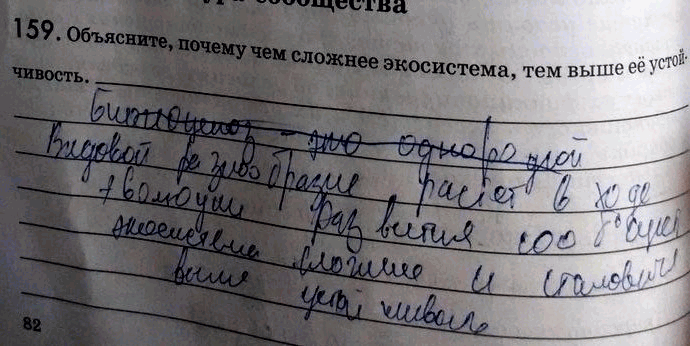 сообщества
159. Объясните, почему чем сложнее экосистема, тем выше её устой-
чивость.
Биоценоз - это однородной
Видовой разнообразие растёт в ходе
эволюции развития сообществ
экосистема сложнее и становится
выше устойчивость
82